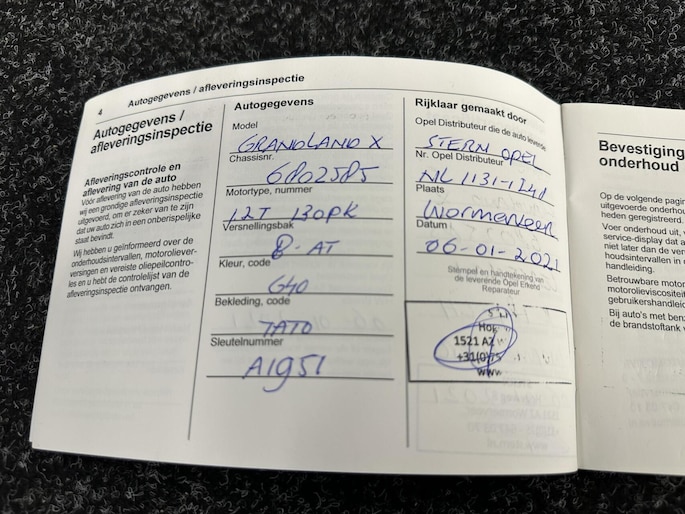 4
Autogegevens / afleveringsinspectie
Autogegevens /
afleveringsinspectie
Afleveringscontrole en
aflevering van de auto
Vóór aflevering van de auto hebben
wij een grondige afleveringsinspectie
uitgevoerd, om er zeker van te zijn
dat uw auto zich in een onberispelijke
staat bevindt.
Wij hebben u geïnformeerd over de
onderhoudsintervallen, motoroliever-
versingen en vereiste oliepeilcontro-
les en u hebt de controlelijst van de
afleveringsinspectie ontvangen.
Autogegevens
Model
GRANDLAND X
Chassisnr.
6802585
Motortype, nummer
12T 130PK
Versnellingsbak
8-AT
Kleur, code
G40
Bekleding, code
TATO
Sleutelnummer
A1951
Rijklaar gemaakt door
Opel Distributeur die de auto leverde
STERN OPEL
Nr. Opel Distributeur
NL 1131-1741
Plaats
Wormerveer
Datum
06-01-2021
Stempel en handtekening van
de leverende Opel Erkend
Reparateur
1521 AZ
+31(0)75
www
Bevestiging
onderhoud
Op de volgende pagin
uitgevoerde onderhoud
heden geregistreerd.
Voer onderhoud uit, v
service-display dat a
niet later dan de ver
houdsintervallen in
handleiding.
Betrouwbare motor
motorolieviscositeit
gebruikershandleid
Bij auto's met benz
de brandstoftank